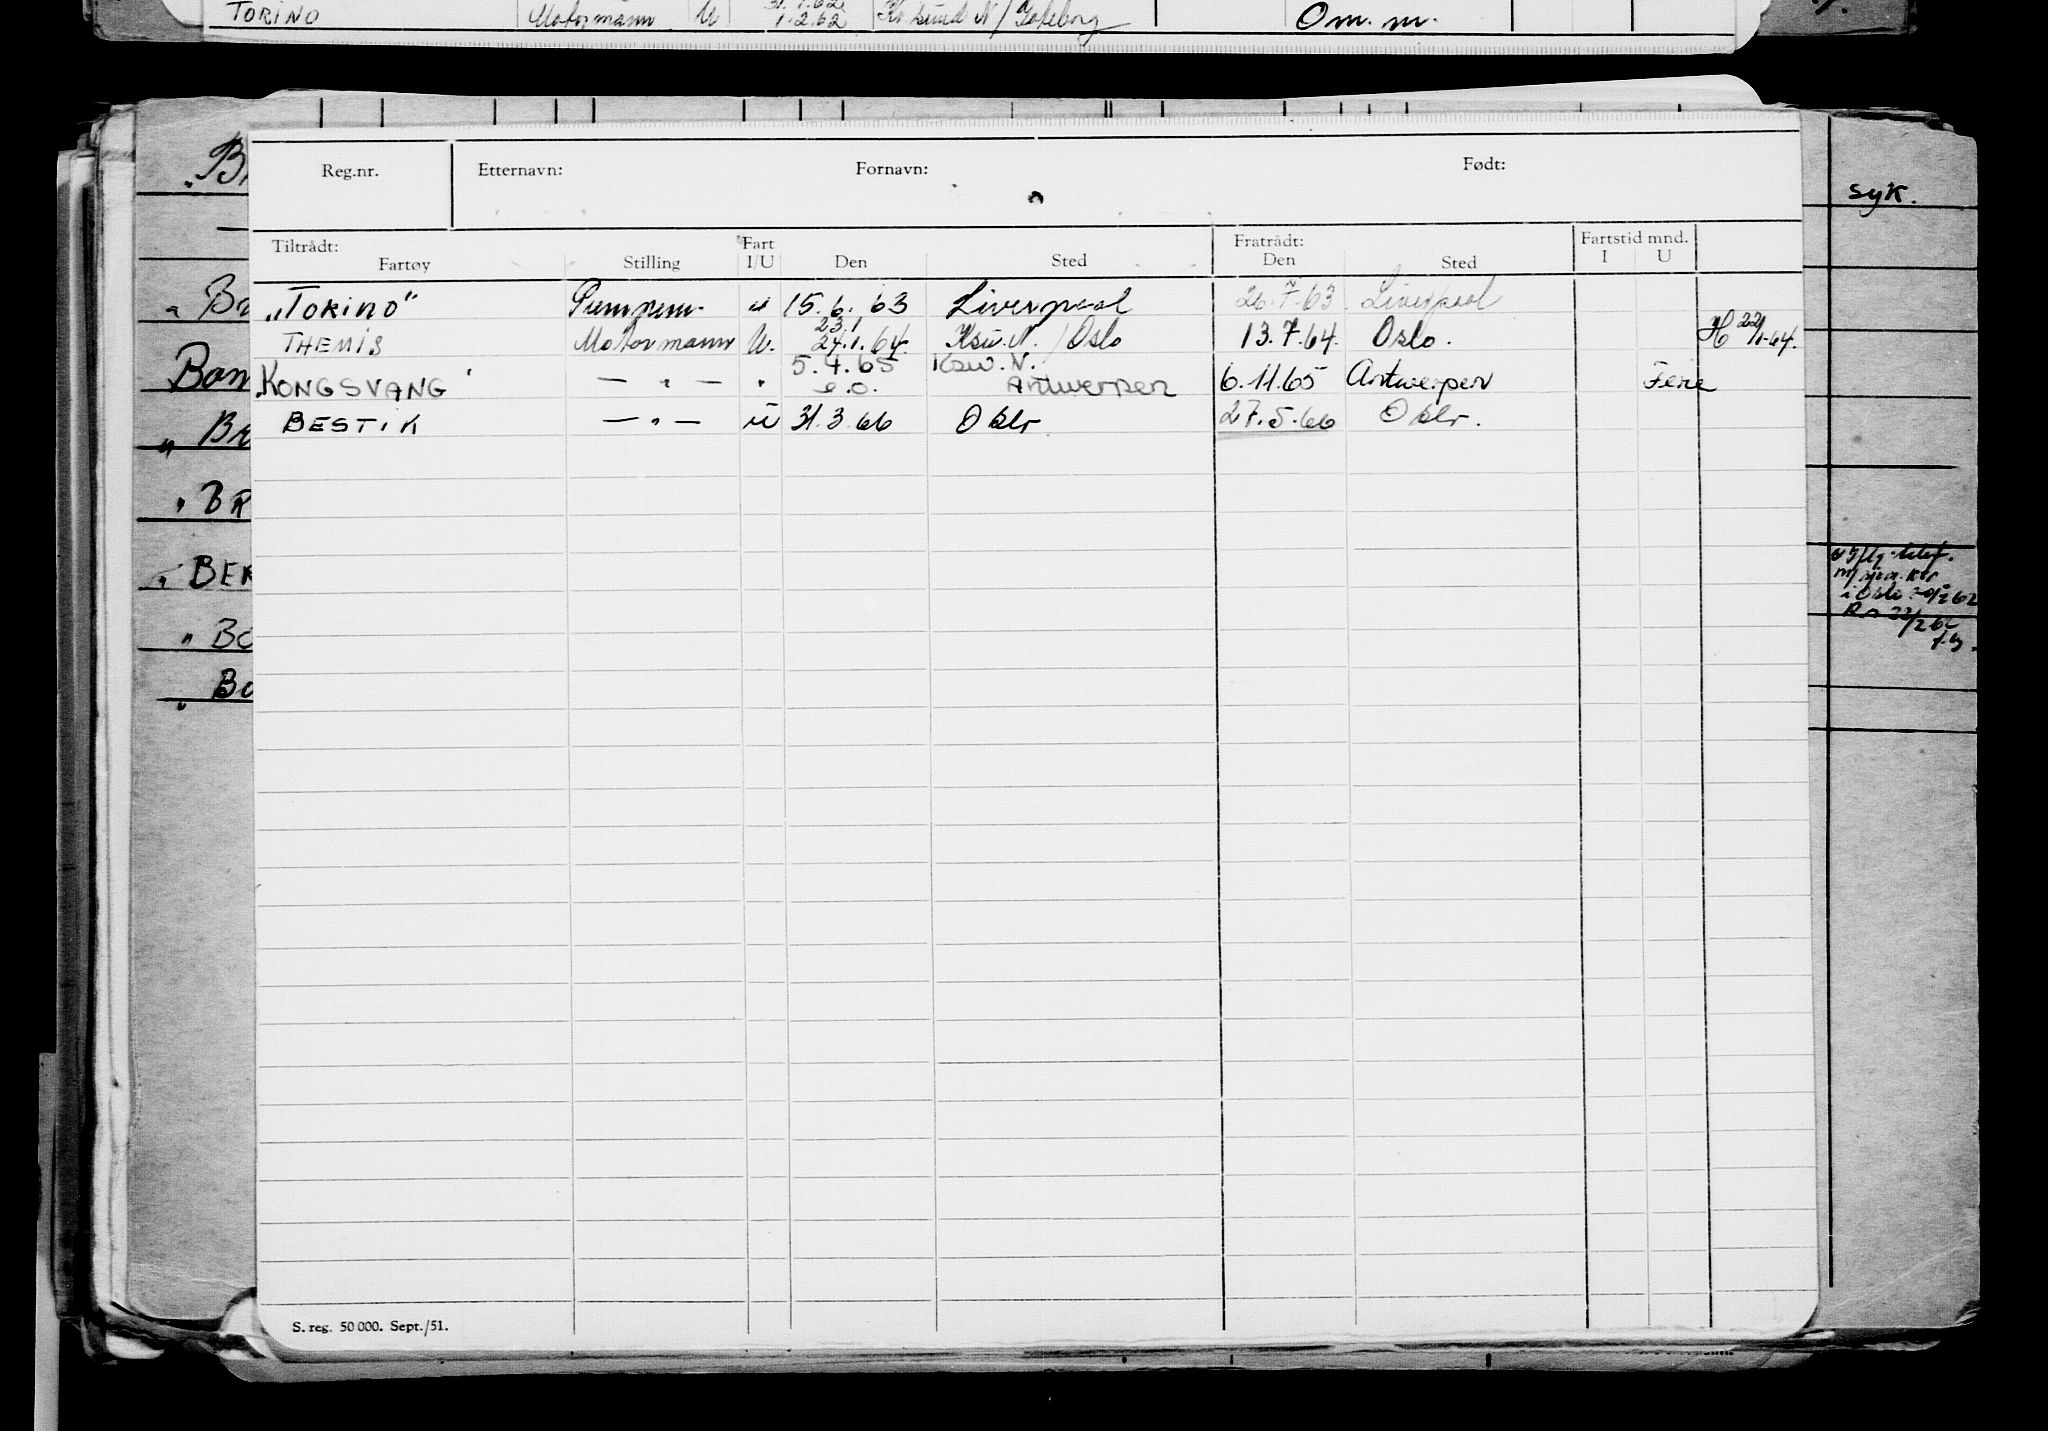 TORINO Motormann U 31.1.62 1.2.62 Kr.sund N/Gøteborg Om.m.
Reg.nr. Etternavn: Fornavn: Født:
Tiltrådt: Fart Fratrådt: Fartstid mnd.
Fartøy Stilling I/U Den Sted Den Sted I U
„TORINO" Pumpem. u 15.6.63 Liverpool 26.7.63 Liverpool
23.1
THEMIS Motormann U. 24.1.64. Ksu.N./Oslo 13.7.64. Oslo. H 22/1-64.
5.4.65 Ksu.N.
„KONGSVANG" — " — " e.o. Antwerpen 6.11.65 Antwerpen Ferie
BESTIK — " — u 31.3.66 Oslo 27.5.66 Oslo.
S. reg. 50 000. Sept./51.
syk.
B
Br
Bom
Br
"BR
"BER
"BO
Bo
i Oslo